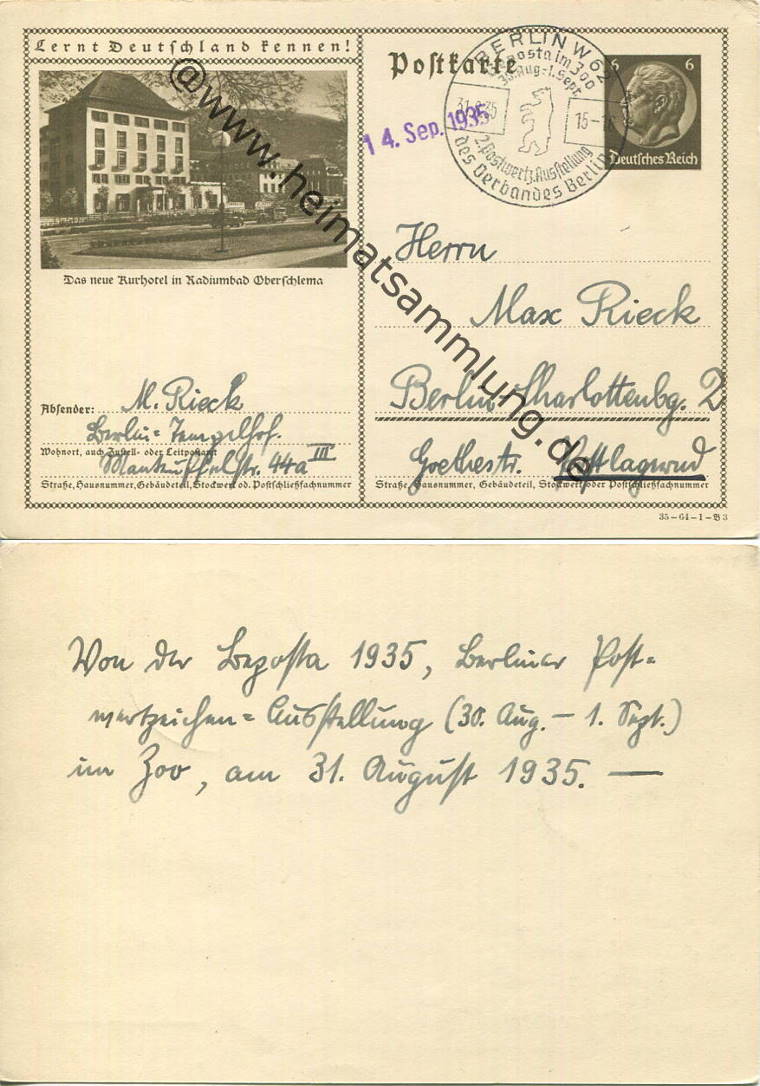 Lernt Deutschland kennen!
Das neue Kurhotel in Radiumbad Oberschlema
Absender: M. Rieck
Berlin=Tempelhof.
Wohnort, auch Zustell- oder Leitpostamt
Manteuffelstr. 44a III
Straße, Hausnummer, Gebäudeteil, Stockwerk od. Postschließfachnummer
Postkarte
BERLIN W 62
posta im Zoo
30. Aug.-1. Sept.
15-
2. Postwertz. Ausstellung
des Verbandes Berlin
14. Sep. 1935
6 6
Deutsches Reich
Herrn
Max Rieck
Berlin-Charlottenbg. 2
Goethestr. Postlagernd
Straße, Hausnummer, Gebäudeteil, Stockwerk oder Postschließfachnummer
35-64-1-B3
@www.heimatsammlung.de
Von der Bezosta 1935, Berliner Post=
wertzeichen=Ausstellung (30. Aug. – 1. Sept.)
im Zoo, am 31. August 1935. —